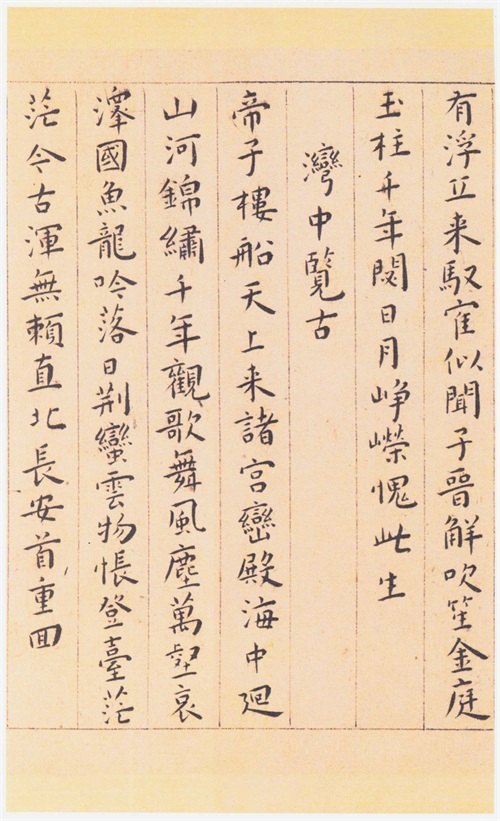 有浮丘来馭寉似聞子晉解吹笙金庭
玉柱千年閟日月崢嶸愧此生
灣中覽古
帝子樓船天上来諸宫巒殿海中廻
山河錦繡千年觀歌舞風塵萬壑哀
澤國魚龍吟落日荆蠻雲物悵登臺茫
茫今古渾無頼直北長安首重回